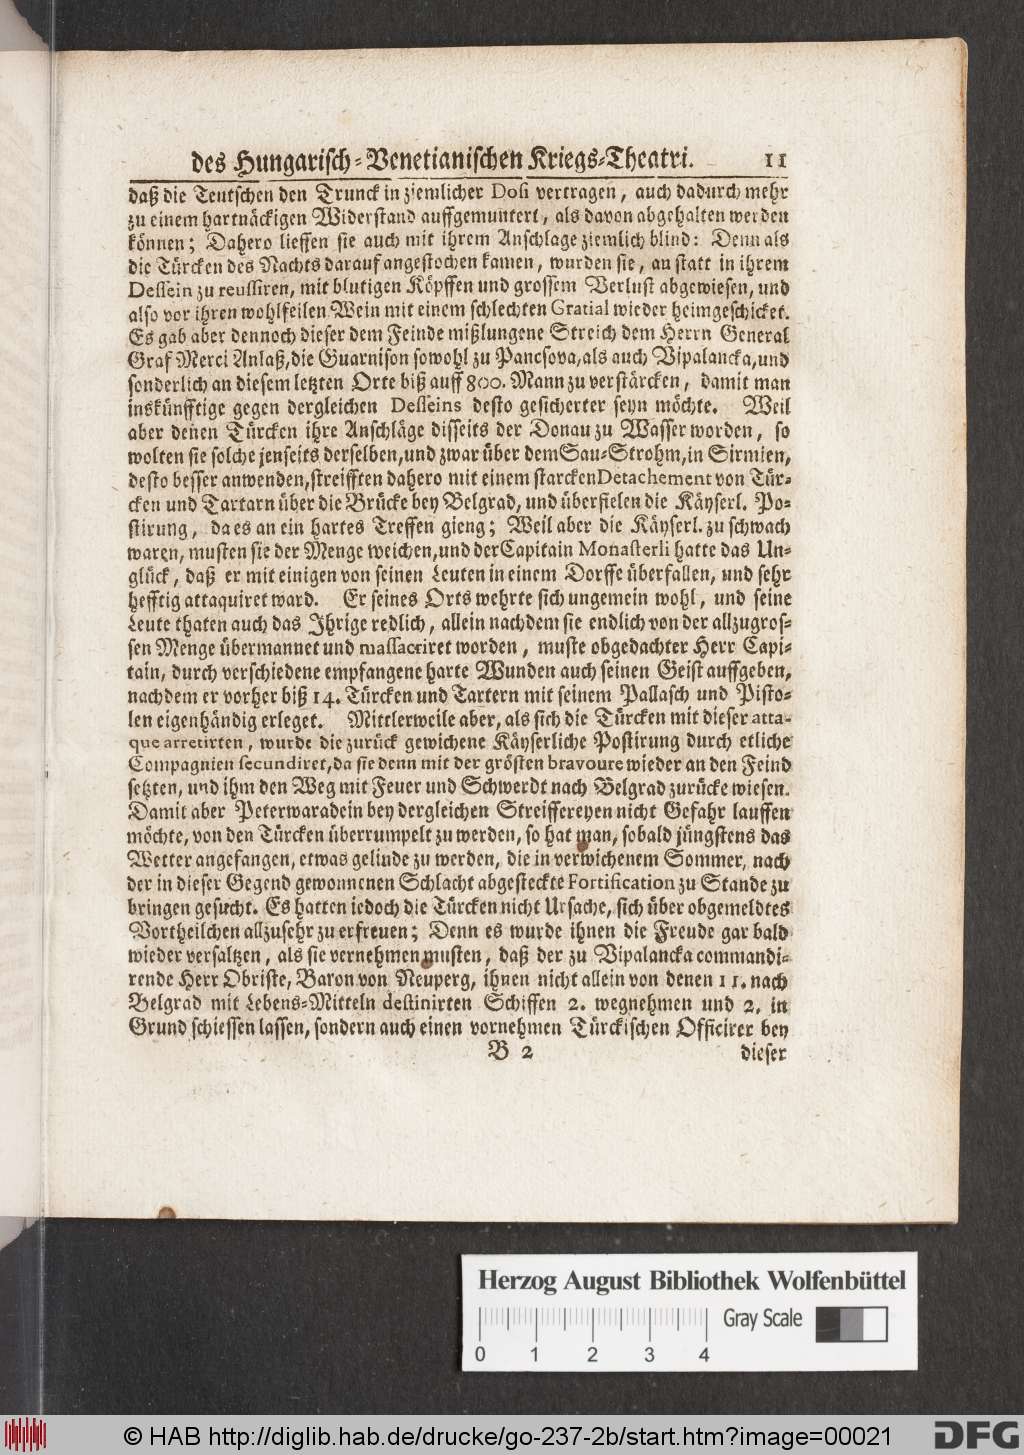 des Hungarisch-Venetianischen Kriegs-Theatri. 11
daß die Teutschen den Trunck in ziemlicher Dosi vertragen, auch dadurch mehr
zu einem hartnäckigen Widerstand auffgemuntert, als davon abgehalten werden
können; Dahero liessen sie auch mit ihrem Anschlage ziemlich blind: Denn als
die Türcken des Nachts darauf angestochen kamen, wurden sie, an statt in ihrem
Dessein zu reussiren, mit blutigen Köpffen und grossem Verlust abgewiesen, und
also vor ihren wohlfeilen Wein mit einem schlechten Gratial wieder heimgeschicket.
Es gab aber dennoch dieser dem Feinde mißlungene Streich dem Herrn General
Graf Merci Anlaß, die Guarnison sowohl zu Pancsova, als auch Vipalancka, und
sonderlich an diesem letzten Orte biß auff 800. Mann zu verstärcken, damit man
inskünfftige gegen dergleichen Desseins desto gesicherter seyn möchte. Weil
aber denen Türcken ihre Anschläge disseits der Donau zu Wasser worden, so
wolten sie solche jenseits derselben, und zwar über dem Sau-Strohm, in Sirmien,
desto besser anwenden, streifften dahero mit einem starcken Detachement von Tür-
cken und Tartarn über die Brücke bey Belgrad, und überfielen die Käyserl. Po-
stirung, da es an ein hartes Treffen gieng; Weil aber die Käyserl. zu schwach
waren, musten sie der Menge weichen, und der Capitain Monasterli hatte das Un-
glück, daß er mit einigen von seinen Leuten in einem Dorffe überfallen, und sehr
hefftig attaquiret ward. Er seines Orts wehrte sich ungemein wohl, und seine
Leute thaten auch das Ihrige redlich, allein nachdem sie endlich von der allzugros-
sen Menge übermannet und massacriret worden, muste obgedachter Herr Capi-
tain, durch verschiedene empfangene harte Wunden auch seinen Geist auffgeben,
nachdem er vorher biß 14. Türcken und Tartern mit seinem Pallasch und Pisto-
len eigenhändig erleget. Mittlerweile aber, als sich die Türcken mit dieser atta-
que arretirten, wurde die zurück gewichene Käyserliche Postirung durch etliche
Compagnien secundiret, da sie denn mit der grösten bravoure wieder an den Feind
setzten, und ihm den Weg mit Feuer und Schwerdt nach Belgrad zurücke wiesen.
Damit aber Peterwaradein bey dergleichen Streiffereyen nicht Gefahr lauffen
möchte, von den Türcken überrumpelt zu werden, so hat man, sobald jüngstens das
Wetter angefangen, etwas gelinde zu werden, die in verwichenem Sommer, nach
der in dieser Gegend gewonnenen Schlacht abgesteckte Fortification zu Stande zu
bringen gesucht. Es hatten iedoch die Türcken nicht Ursache, sich über obgemeldtes
Vortheilchen allzusehr zu erfreuen; Denn es wurde ihnen die Freude gar bald
wieder versaltzen, als sie vernehmen musten, daß der zu Vipalancka commandi-
rende Herr Obriste, Baron von Neuperg, ihnen nicht allein von denen 11. nach
Belgrad mit Lebens-Mitteln destinirten Schiffen 2. wegnehmen und 2. in
Grund schiessen lassen, sondern auch einen vornehmen Türckischen Officirer bey
B 2 dieser
Herzog August Bibliothek Wolfenbüttel
Gray Scale
0 1 2 3 4
© HAB http://diglib.hab.de/drucke/go-237-2b/start.htm?image=00021
DFG